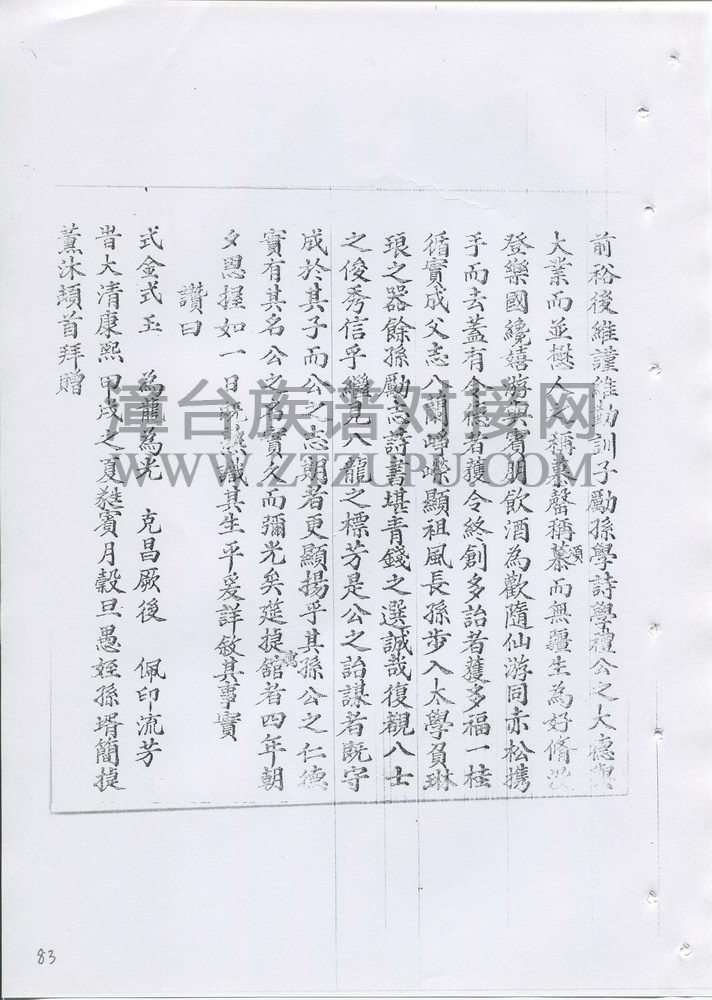 前裕後維謹維勤訓子勵孫學詩學禮公之大德與
大業而並懋人之稱蘋馨稱慕而無疆生為好脩沒
登樂國纔嬉游與賓朋飲酒為歡隨仙游同赤松携
手而去蓋有令德者獲令終創多詒者獲多福一桂
循實成父志八蘭崢嶸顯祖風長孫步入太學負琳
琅之器餘孫勵志詩書堪青錢之選誠哉復觀八士
之俊秀信乎繼見八龍之標芳是公之詒謀者既守
成於其子而公之志期者更顯揚乎其孫公之仁德
實有其名公之名實久而彌光矣筵捷寓舘者四年朝
夕恩握如一日既熟識其生平爰詳敘其事實
讚曰
式金式玉 為龍為光 克昌厥後 佩印流芳
旹大清康熙甲戌之夏蕤賓月穀旦愚姪孫壻簡捷
薰沐頓首拜贈
漳台族谱对接网
WWW.ZTZUPU.COM
83